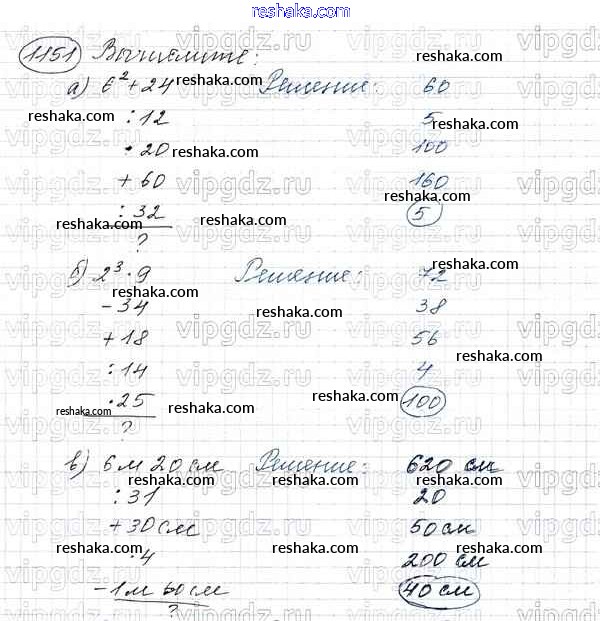 reshaka.com
1151 Вычислите:
а) 6² + 24 Решение: 60
: 12 5
· 20 100
+ 60 160
: 32 5
?
б) 2³ · 9 Решение: 72
- 34 38
+ 18 56
: 14 4
· 25 100
?
в) 6 м 20 см Решение: 620 см
: 31 20
+ 30 см 50 см
· 4 200 см
- 1 м 60 см 40 см
?